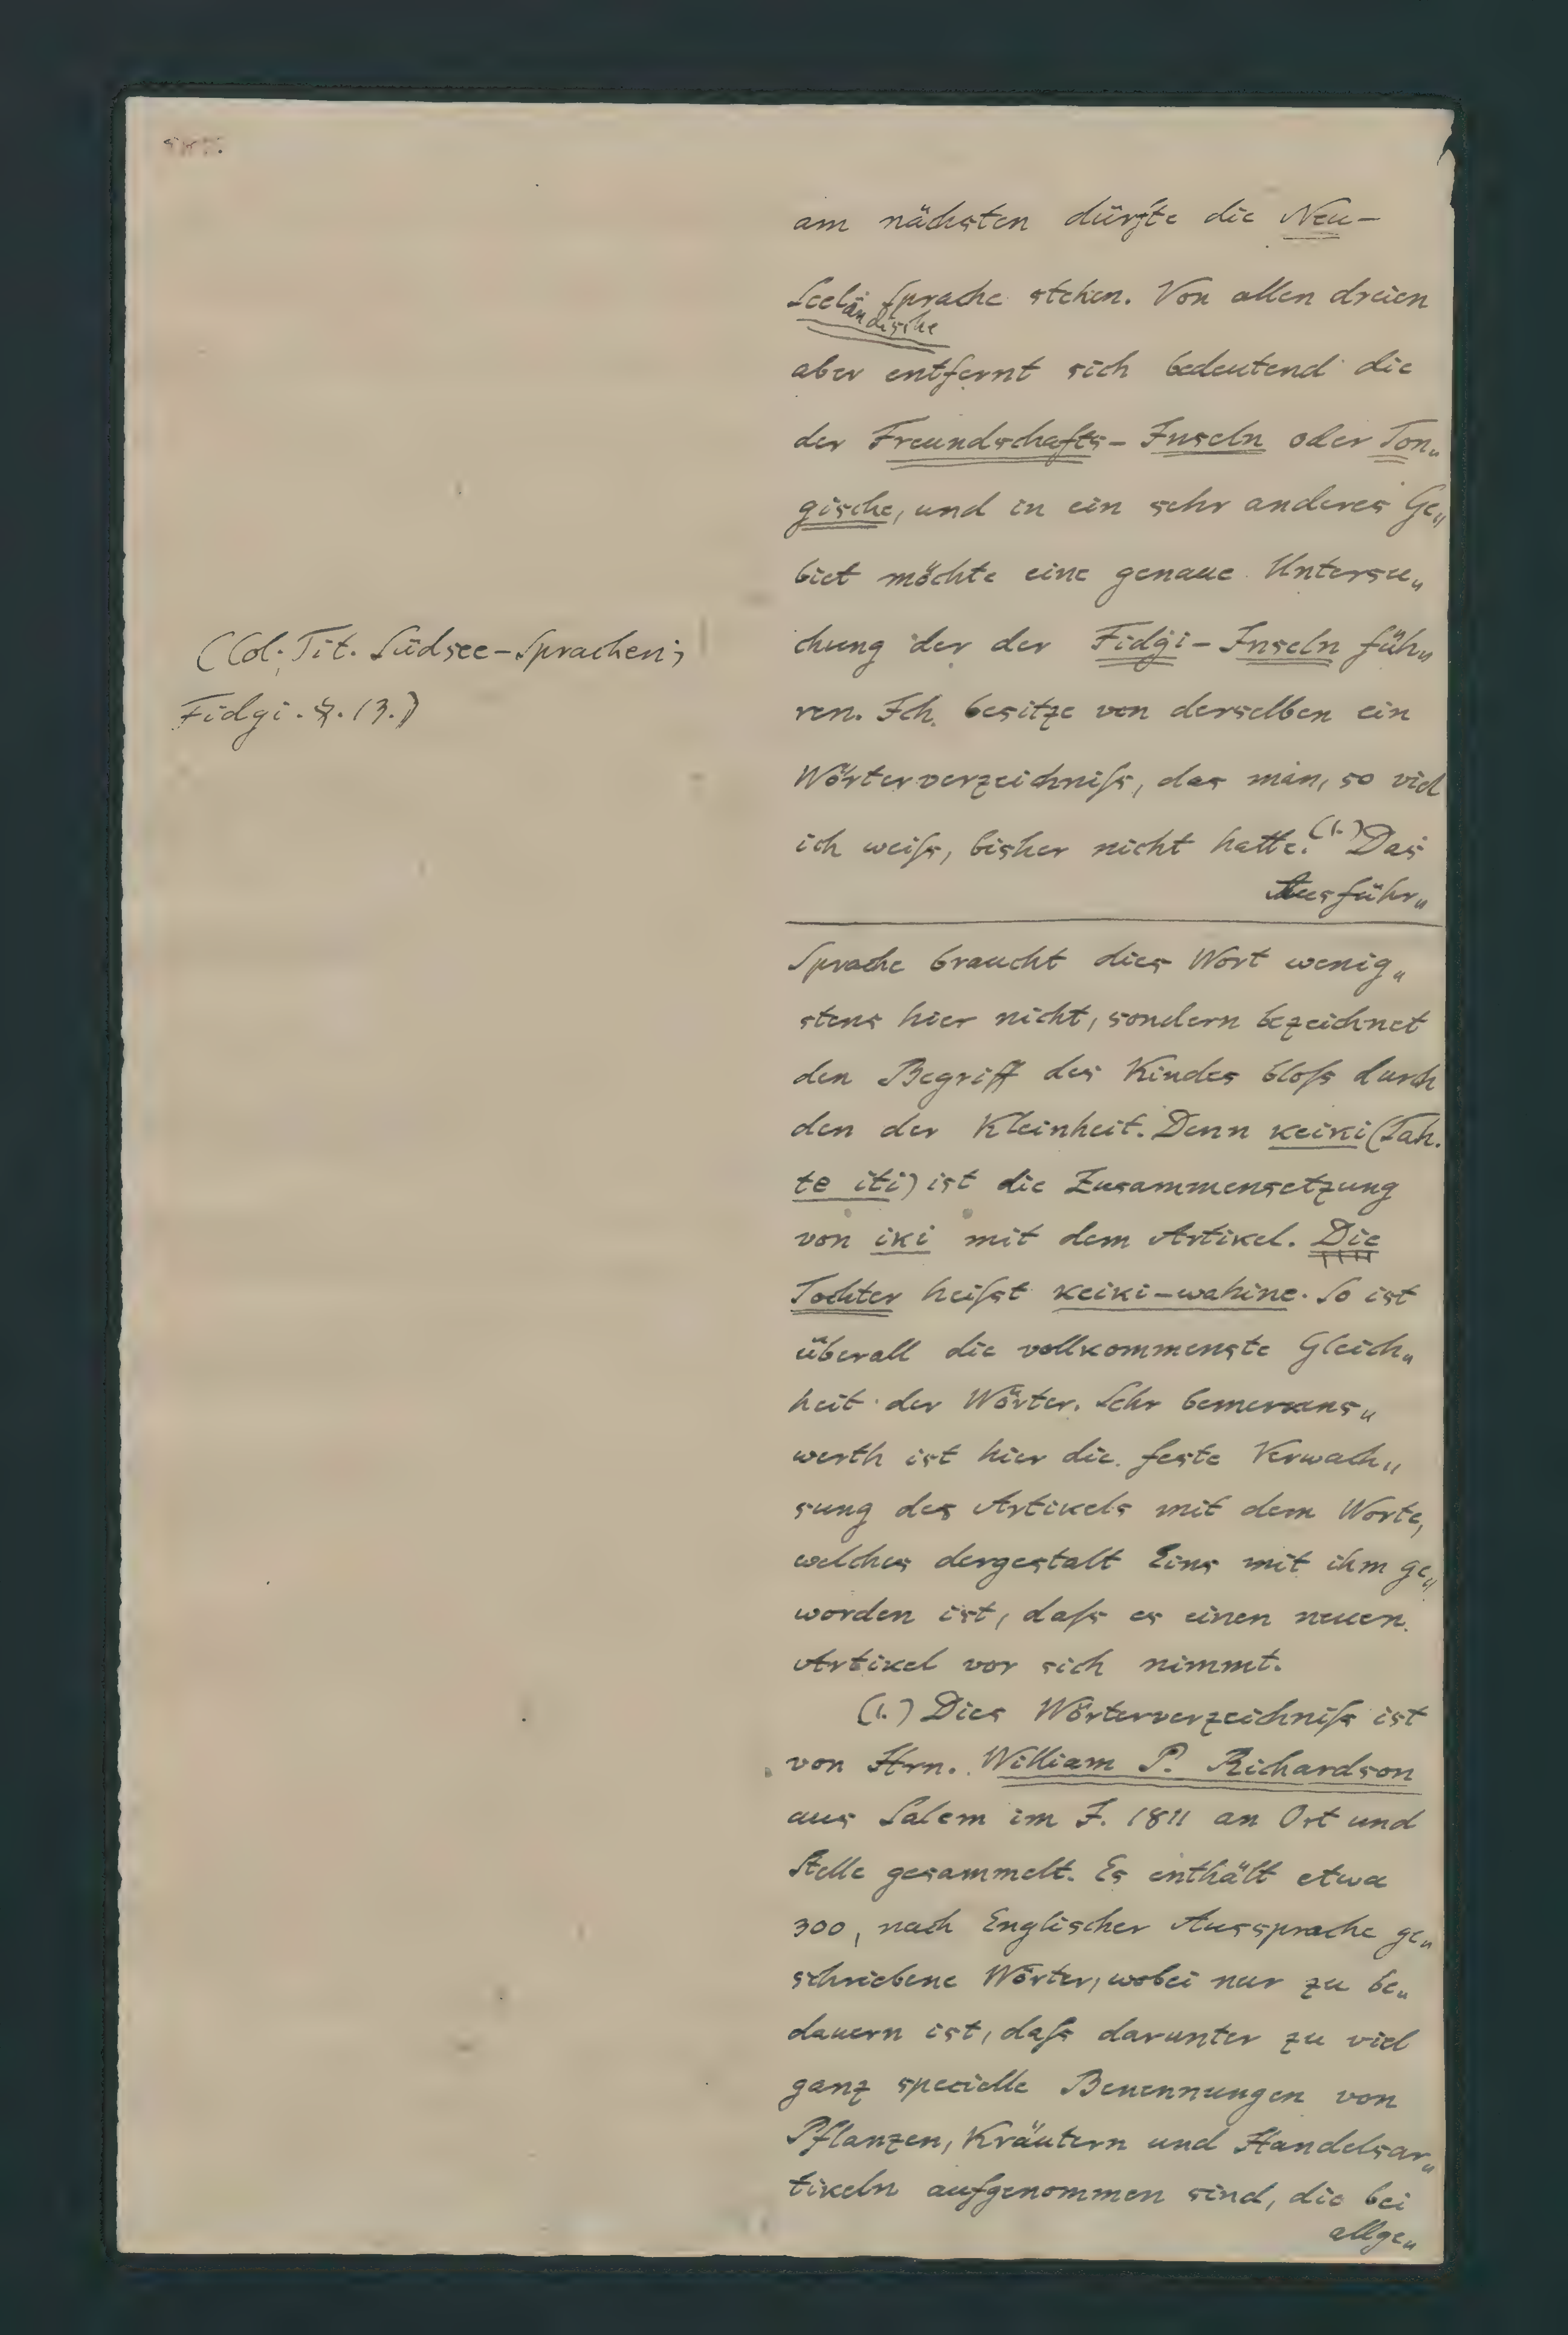 am nächsten dürfte die Neu-
Seeländische Sprache stehen. Von allen dreien
aber entfernt sich bedeutend die
der Freundschafts-Inseln oder Ton„
gische, und in ein sehr anderes Ge„
biet möchte eine genaue Untersu„
(Col. Tit. Südsee-Sprachen;
chung der der Fidgi-Inseln füh„
Fidgi. §. 13.)
ren. Ich besitze von derselben ein
Wörterverzeichniſs, das man, so viel
ich weiſs, bisher nicht hatte.(1.) Das
Ausführ„
Sprache braucht dies Wort wenig„
stens hier nicht, sondern bezeichnet
den Begriff des Kindes bloſs durch
den der Kleinheit. Denn keiki (Tah.
te iti) ist die Zusammensetzung
von iki mit dem Artikel. Die
Tochter heiſst keiki-wahine. So ist
überall die vollkommenste Gleich„
heit der Wörter. Sehr bemerkens„
werth ist hier die feste Verwach„
sung des Artikels mit dem Worte,
welches dergestalt Eins mit ihm ge„
worden ist, daſs es einen neuen
Artikel vor sich nimmt.
(1.) Dies Wörterverzeichniſs ist
von Hrn. William P. Richardson
aus Salem im J. 1811 an Ort und
Stelle gesammelt. Es enthält etwa
300, nach Englischer Aussprache ge„
schriebene Wörter, wobei nur zu be„
dauern ist, daſs darunter zu viel
ganz specielle Benennungen von
Pflanzen, Kräutern und Handelsar„
tikeln aufgenommen sind, die bei
allge„